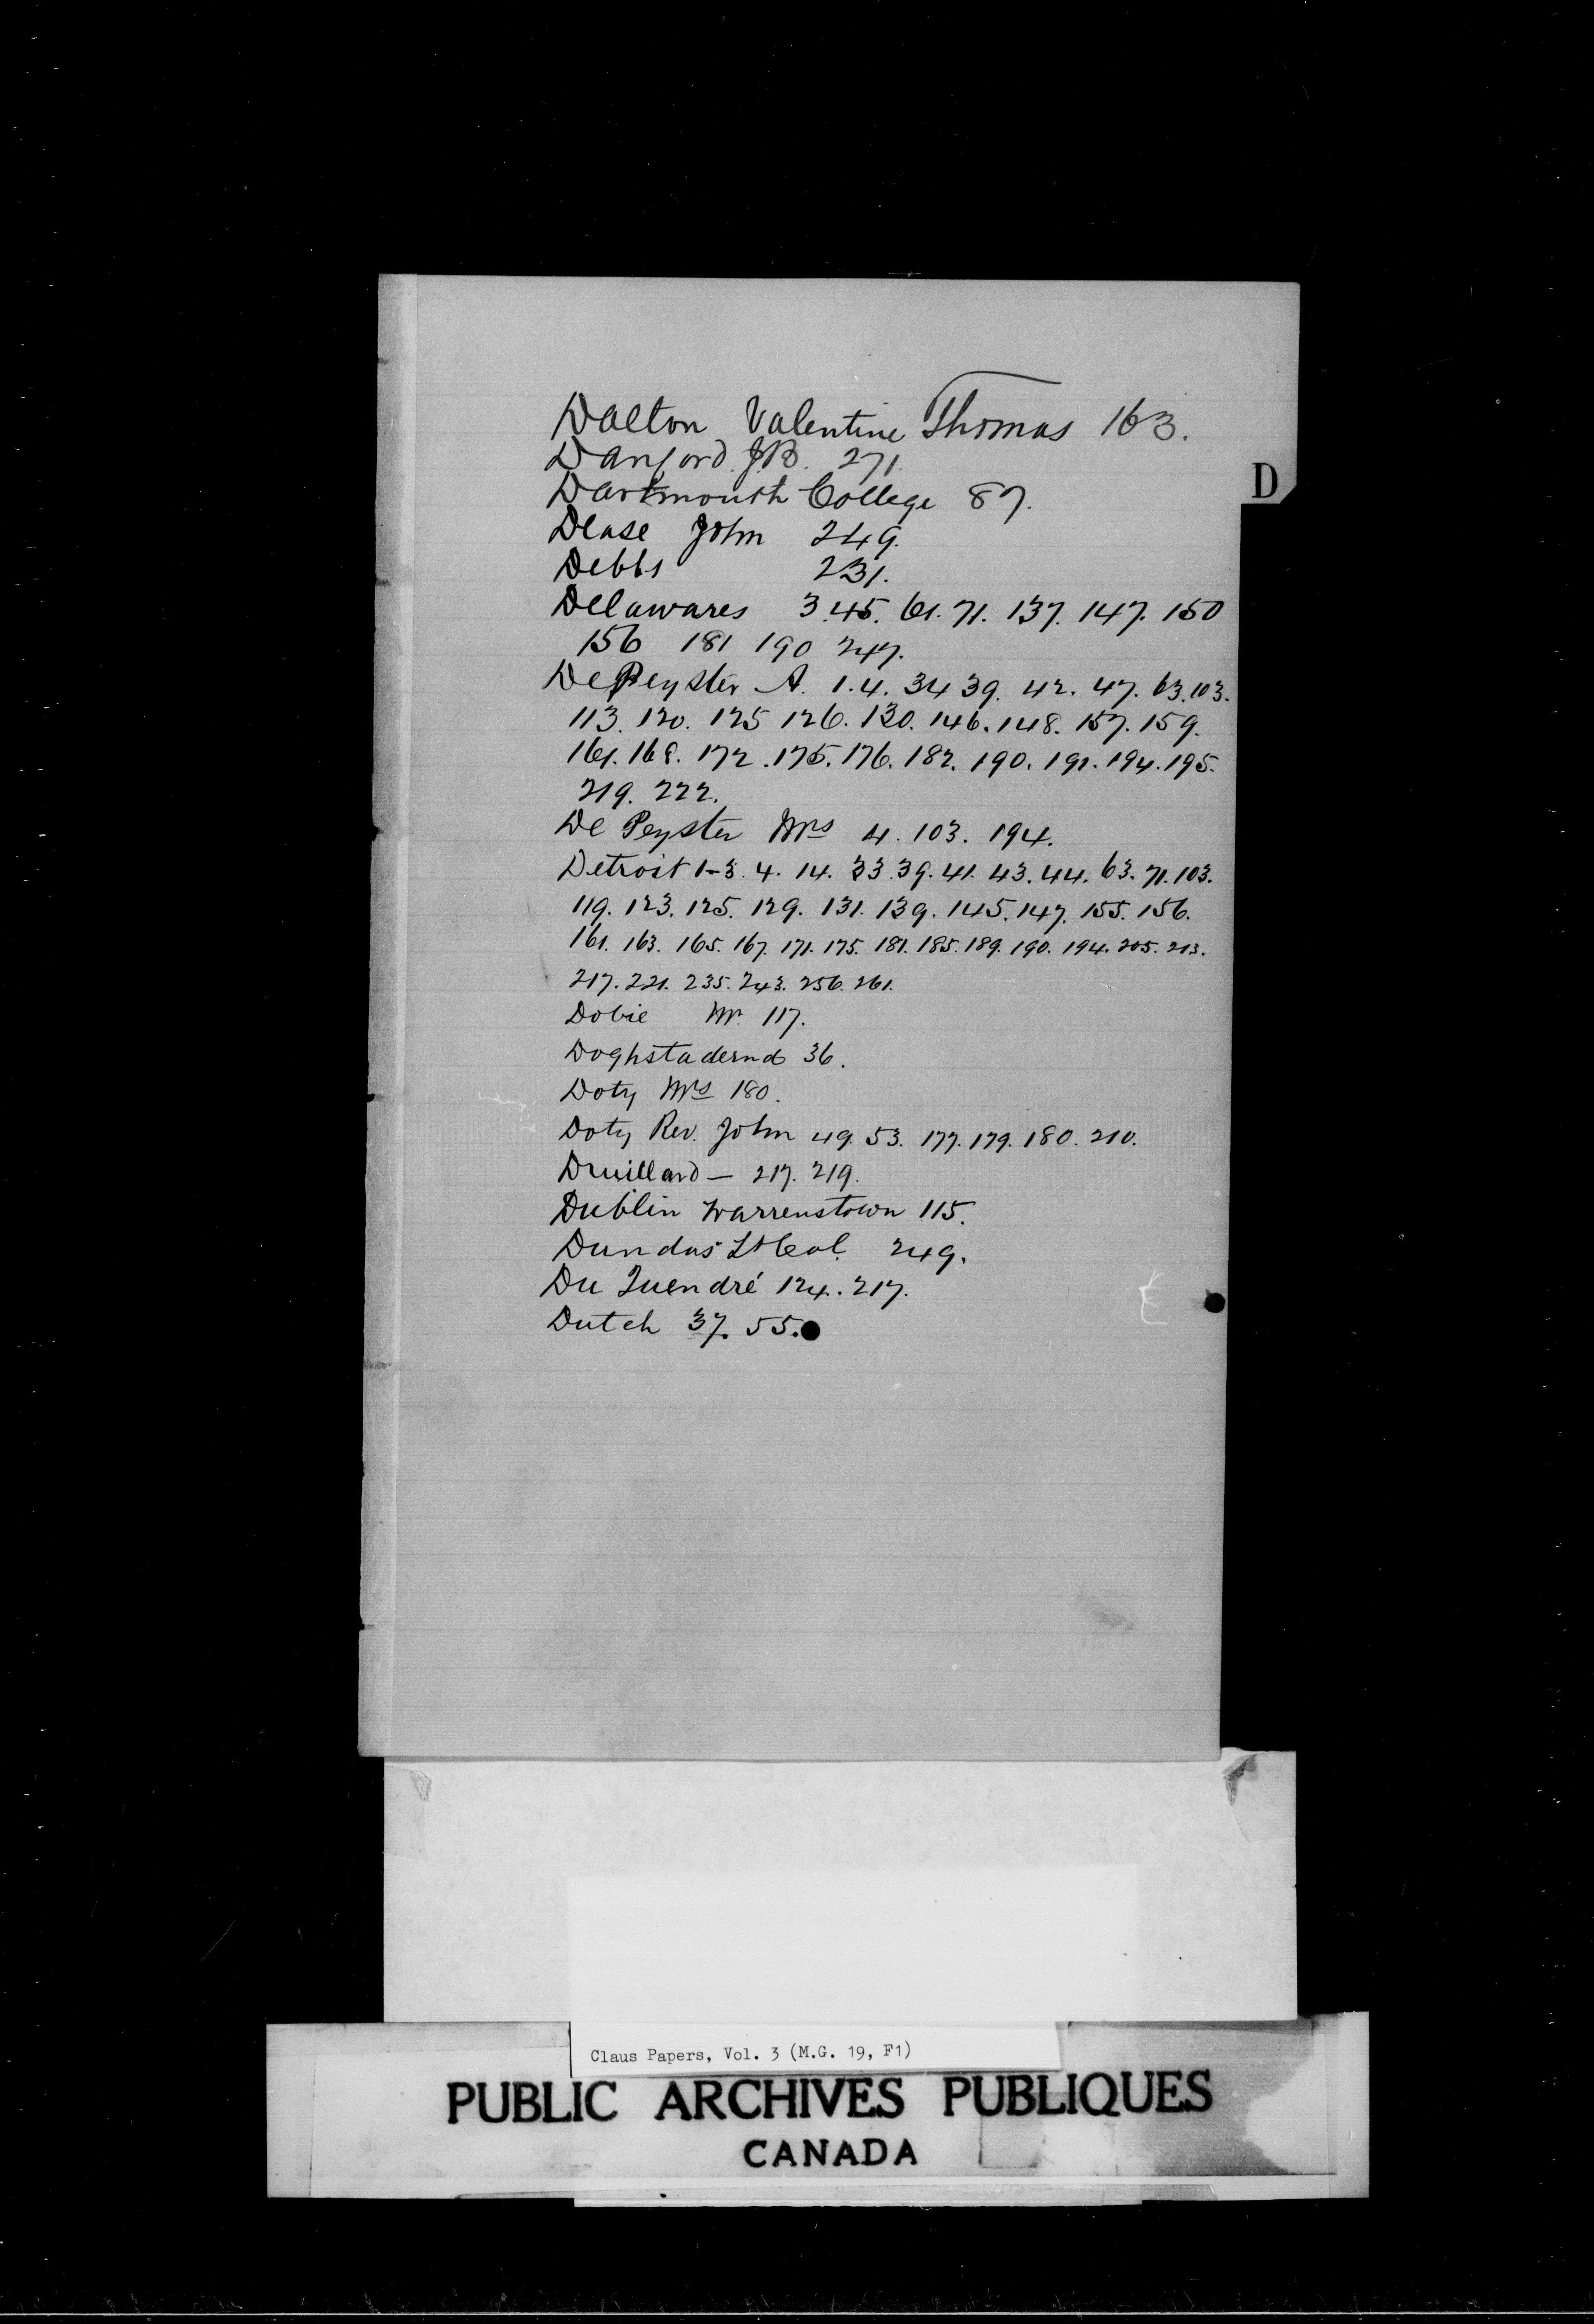 Dalton Valentine Thomas 163.
Danford. J.B. 271.
D
Dartmouth College 87.
Dease John 249.
Debbs 231.
Delawares 3.45. 61. 71. 137. 147. 150
156 181 190 247.
De Peyster A. 1.4. 34 39. 42. 47. 63. 103.
113. 120. 125 126. 130. 146. 148. 157. 159.
161. 168. 172. 175. 176. 182. 190. 191. 194. 195.
219. 222.
De Peyster Mrs 4. 103. 194.
Detroit 1-3. 4. 14. 33. 39. 41. 43. 44. 63. 71. 103.
119. 123. 125. 129. 131. 139. 145. 147. 155. 156.
161. 163. 165. 167. 171. 175. 181. 185. 189. 190. 194. 205. 213.
217. 221. 235. 243. 256. 261.
Dobie Mr. 117.
Doghstadernd 36.
Doty Mrs 180.
Doty Rev. John 49. 53. 177. 179. 180. 210.
Druillard — 217. 219.
Dublin Warrenstown 115.
Dundas Lt Col. 249.
Du Quendré 124. 217.
Dutch 37. 55.
Claus Papers, Vol. 3 (M.G. 19, F1)
PUBLIC ARCHIVES PUBLIQUES
CANADA